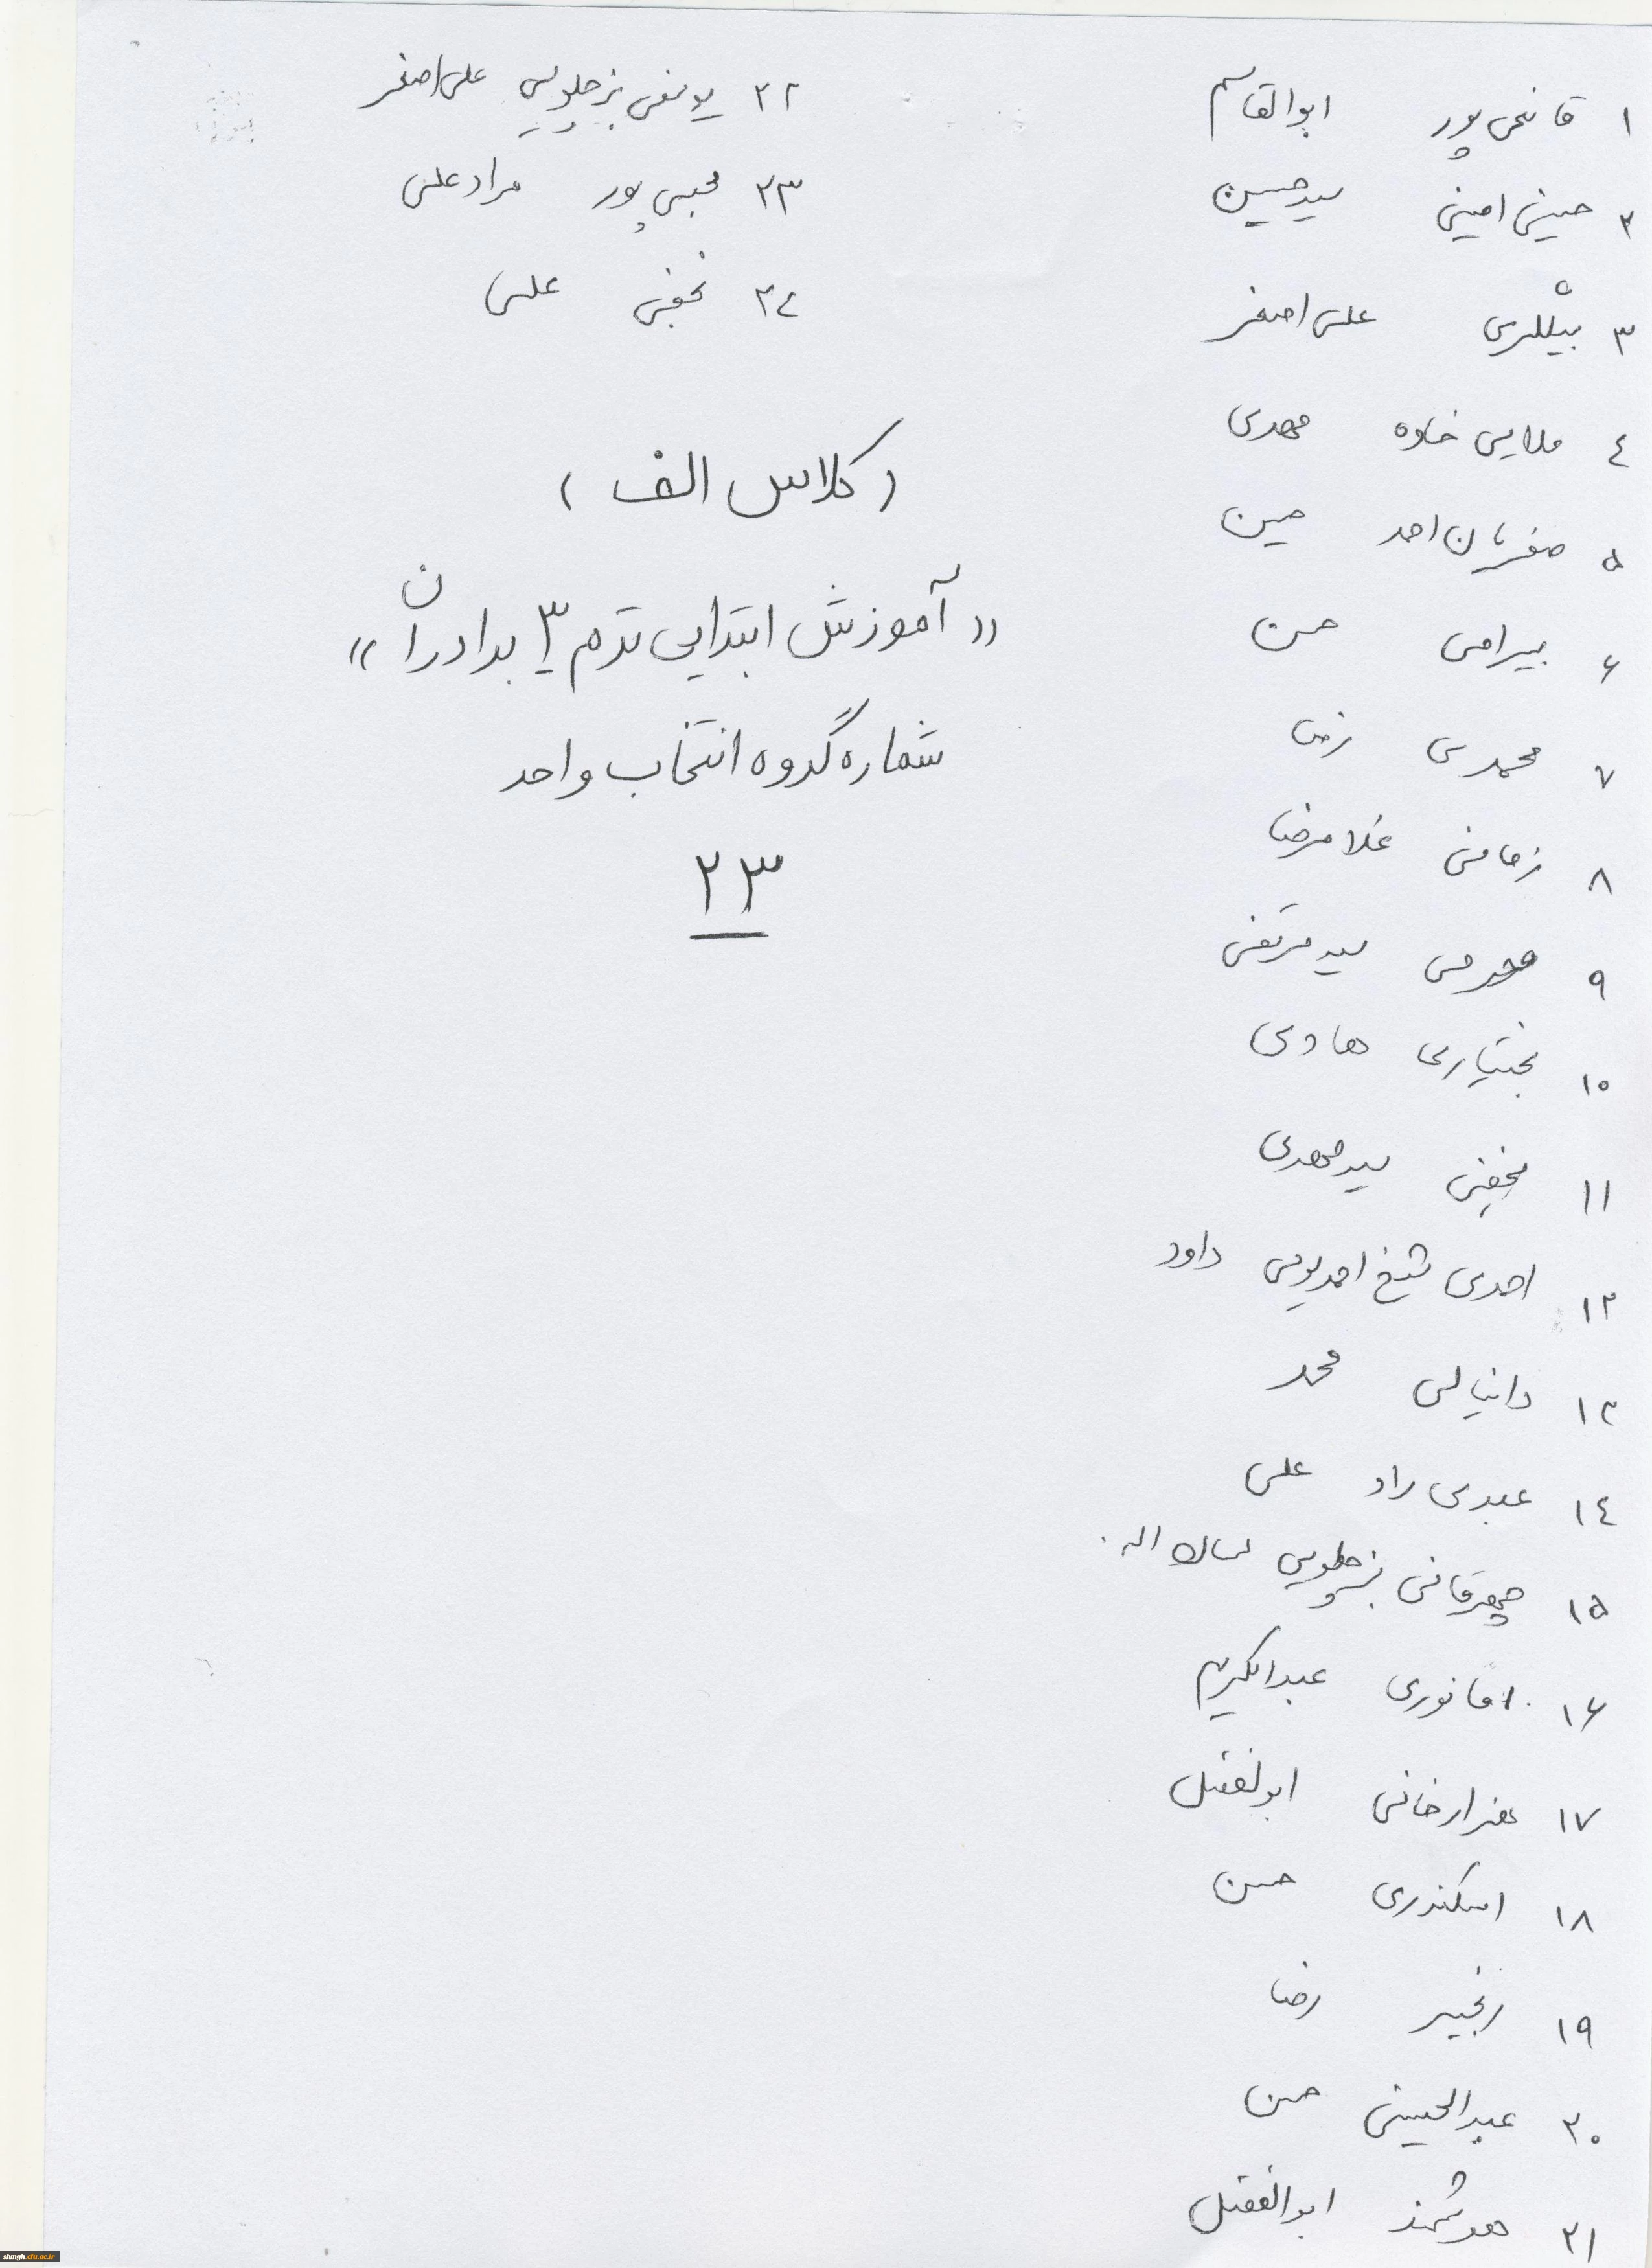 ۱ قائمی پور ابوالقاسم
۲ حسینی امینی سیدحسین
۳ بیگلری علی اصغر
٤ ملایی خاوه مهدی
۵ صفریان احد حسین
۶ بیرامی حسن
۷ محمدی رضا
۸ زمانی غلامرضا
۹ سید مرتضی
۱۰ بختیاری هادی
۱۱ نجفی سیدمهدی
۱۲ احمدی شیخ احمدیوسی داود
۱۳ دانیالی محمد
۱٤ عبدی راد علی
۱۵ چهرقانی بزچلویی لسان اله
۱۶ امانوری عبدالکریم
۱۷ هزارخانی ابولفضل
۱۸ اسکندری حسن
۱۹ رنجبر رضا
۲۰ عبدالحسینی حسن
۲۱ هوشمند ابوالفضل
۲۲ یوسفی بزچلویی علی اصغر
۲۳ محبی پور مرادعلی
۲٤ نجفی علی
(کلاس الف)
«آموزش ابتدایی ترم ۳ برادران»
شماره گروه انتخاب واحد
۲۳
shmgh.cfu.ac.ir